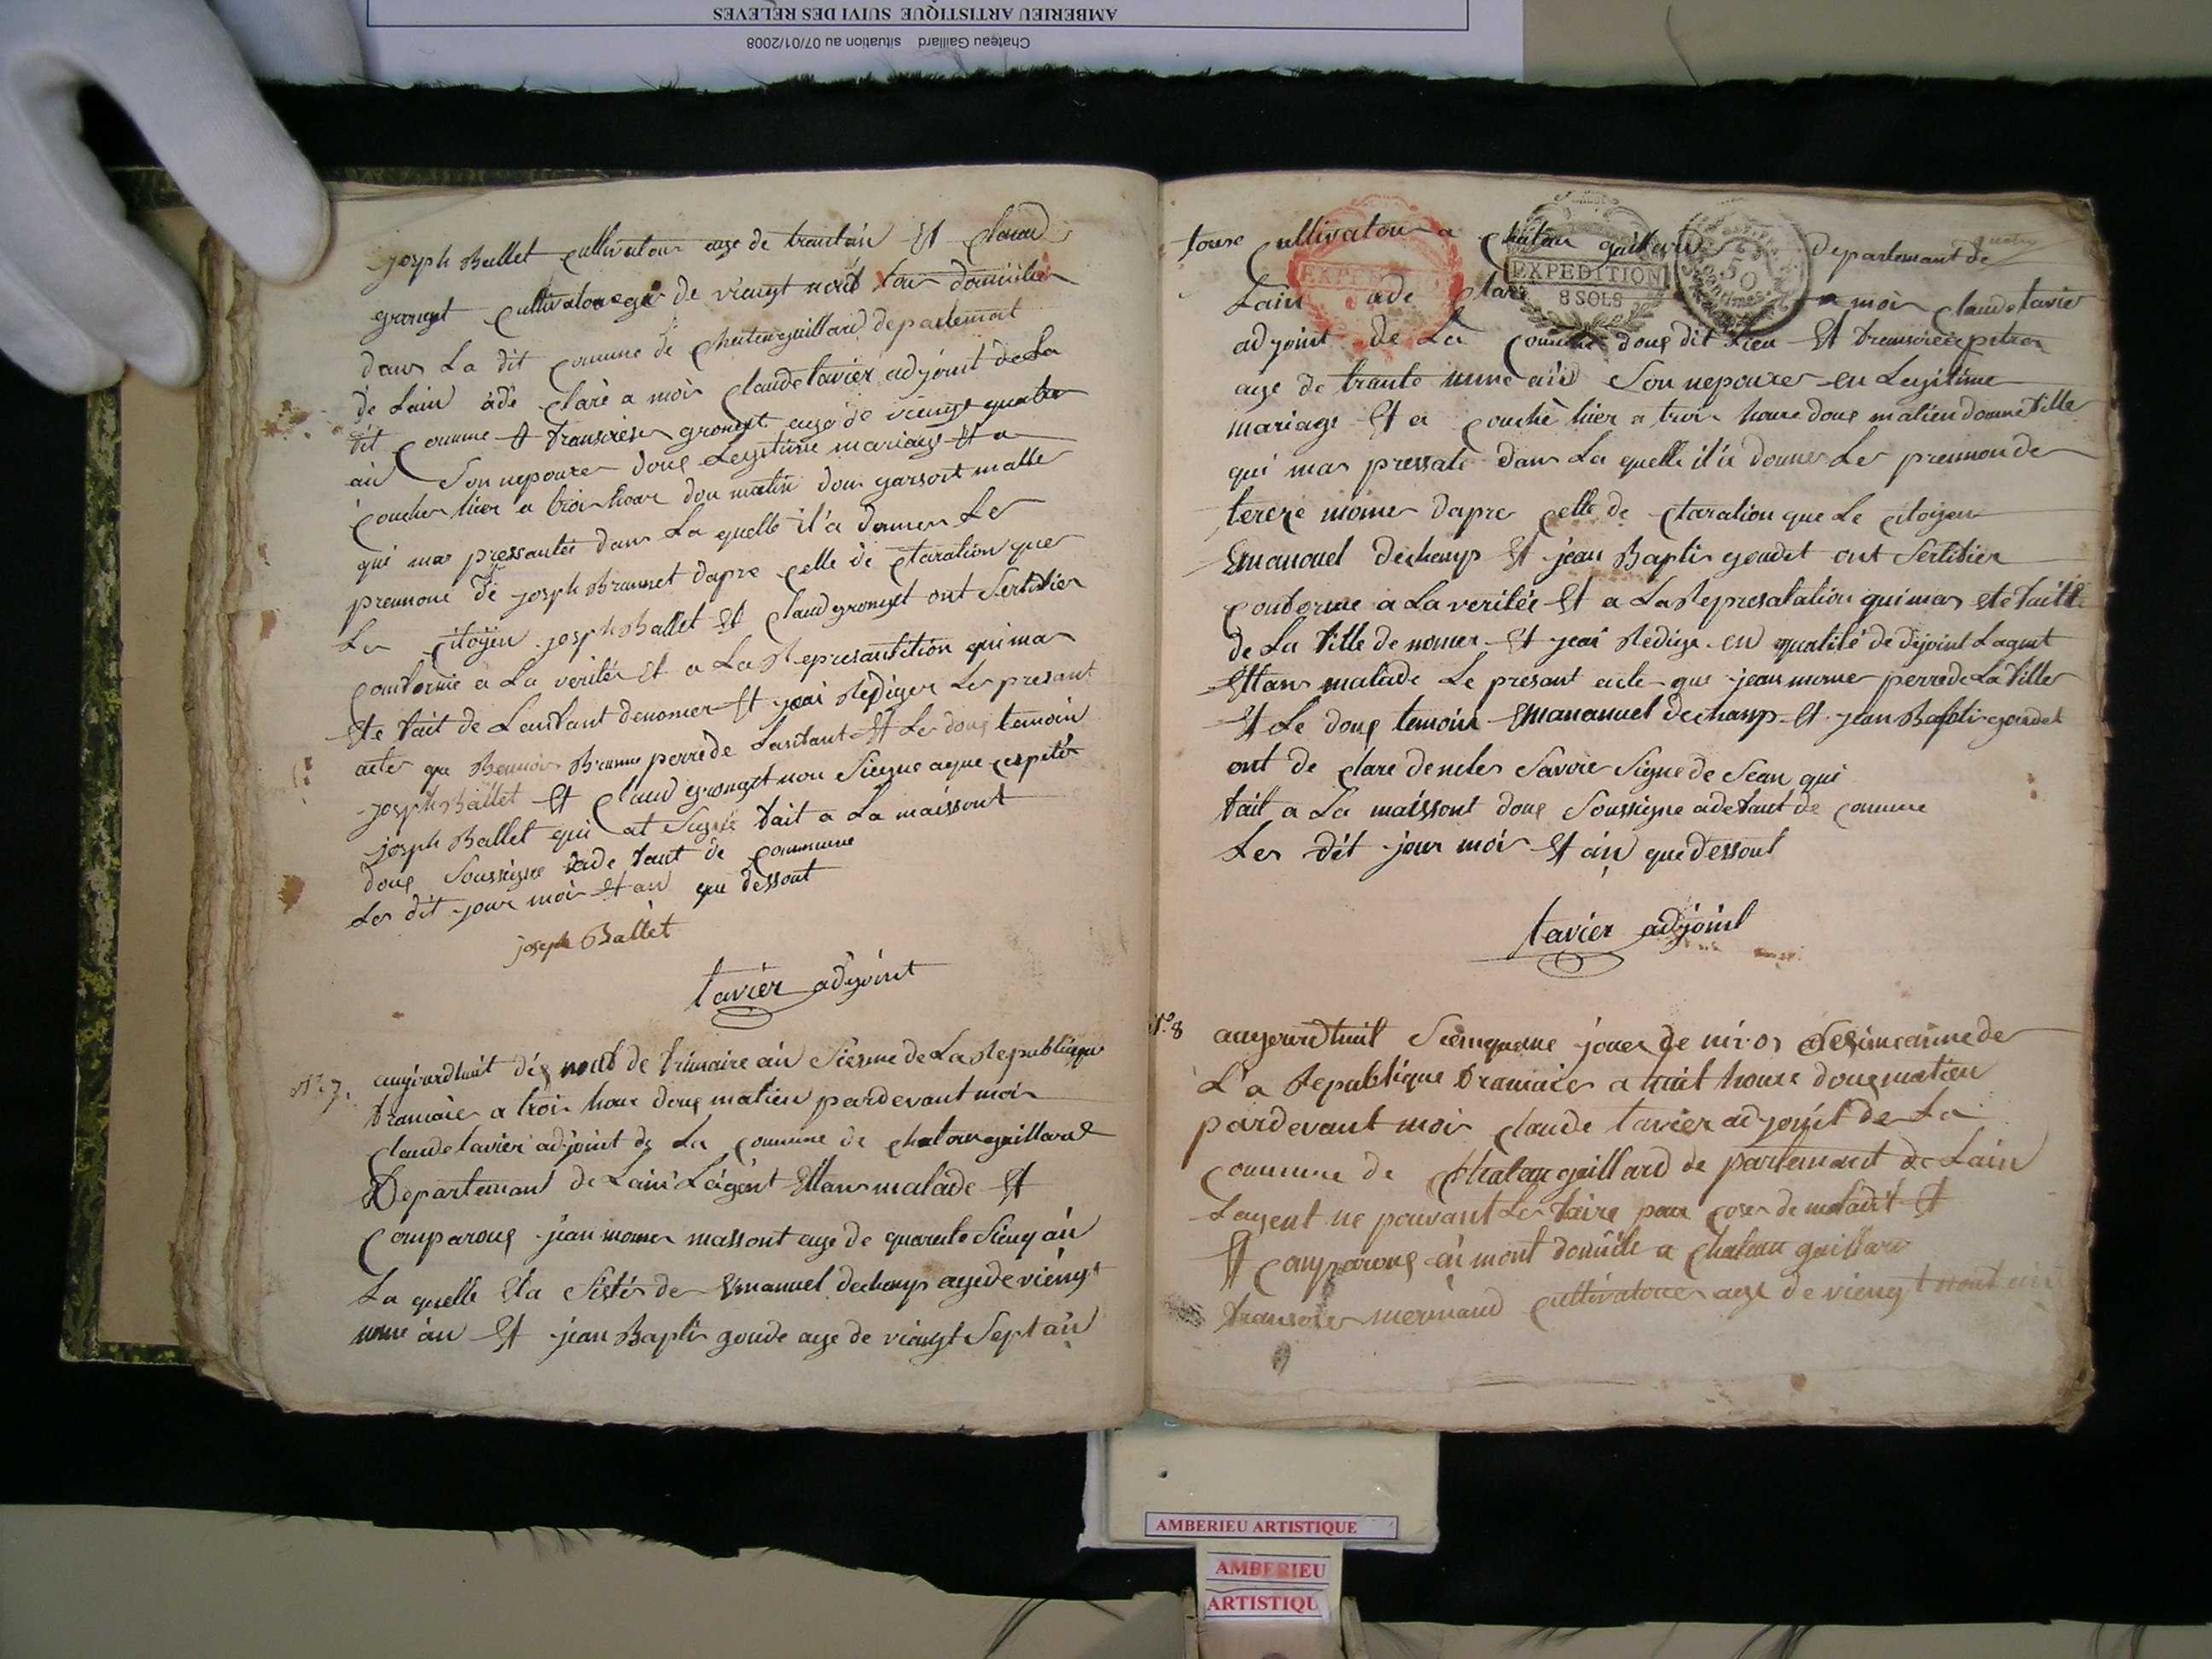 AMBERIEU ARTISTIQUE SUIVI DES RELEVES
Chateau Gaillard situation au 07/01/2008
joseph Ballet cultivatour age de trantan et claud
grongst cultivatour age de viengt neuf tous domicilier
dans La dit comune de chateaugaillard departemant
de Lain a de clare a moi claude tavier adjoint de La
dit comune et fransoise grongst age de viengt quatre
an Son nepouxe dong Legitime mariage et a
coucher hier a troi houre dou matin doun garsont malle
qui mas pressantee dans La quelle il a donner Le
prennont de joseph Brunnet dapre celle de claration que
Les citoyen joseph Ballet et claud grongst ont Sertifier
conforme a La verites et a La Representation qui mas
ete fait de Lenfant denomer et jeai Rediger Le presant
acte que Bennoi Brunne perre de Lenfant et Les dong temoin
joseph Ballet et claud grongst non Siegne aque cepter
joseph Ballet qui at Signe fait a La maissont
doug Soussigne ade faut de commune
Les dit jour moi et an que dessout
joseph Ballet
tavier adjoint
N° 7.
aujourdhuit diz neuf de frimaire an Sieme de La Republique
franscaise a troi houre doug matien pardevant moi
claude tavier adjoint de La comune de chatougaillard
Departemant de Lain Lagent ettans malade et
comparoug jean momer massont age de quarente Sienq an
La quelle eta Sister de Emanuel dechamp age de viengt
nenne an et jean Baptis goude age de viengt Sept an
tous cultivatour a chatau gaillard departemant de
Lain a de clare a moi claude tavier
EXPEDITION
8 SOLS
50
Centimes
adjoint de La comune doug dit Lieu et fransoise pitre
age de trante nenne an Son nepouxe en Legitime
mariage et a couche hier a troi houre doug matien doune fille
qui mas pressate dans La quelle il a donner Le prennon de
tereze momer dapre celle de claration que Le citoyen
Emanouel dechamp et jean Baptis goudet ont Sertifier
conforme a La veritee et a La Represatation qui mas ete faitte
de La fille de nomer et jeai Redige en qualite de djoint Lagent
ettans malade Le presant acte que jean momer perre de La fille
et Le doug temoin Emananuel dechamp et jean Baptis goudet
ont de clare de neles Savoir Signe de Sean qui
fait a La maissont doug Soussigne a defaut de comune
Les dit jour moi et an que dessout
tavier adjoint
N° 8
aujourdhuit Siemqueme jouer de nivos Sesimeanne de
La Republique franscaise a huit houre doug matien
pardevant moi claude tavier adjoint de La
comune de chateau gaillard de partemant de Lain
Lagent ne pouvant Les faire pour cose de maladit et
et comparoug ai mont domicile a chateau gaillard
fransois mermand cultivatour age de viengt neuf an
AMBERIEU ARTISTIQUE
AMBERIEU
ARTISTIQU